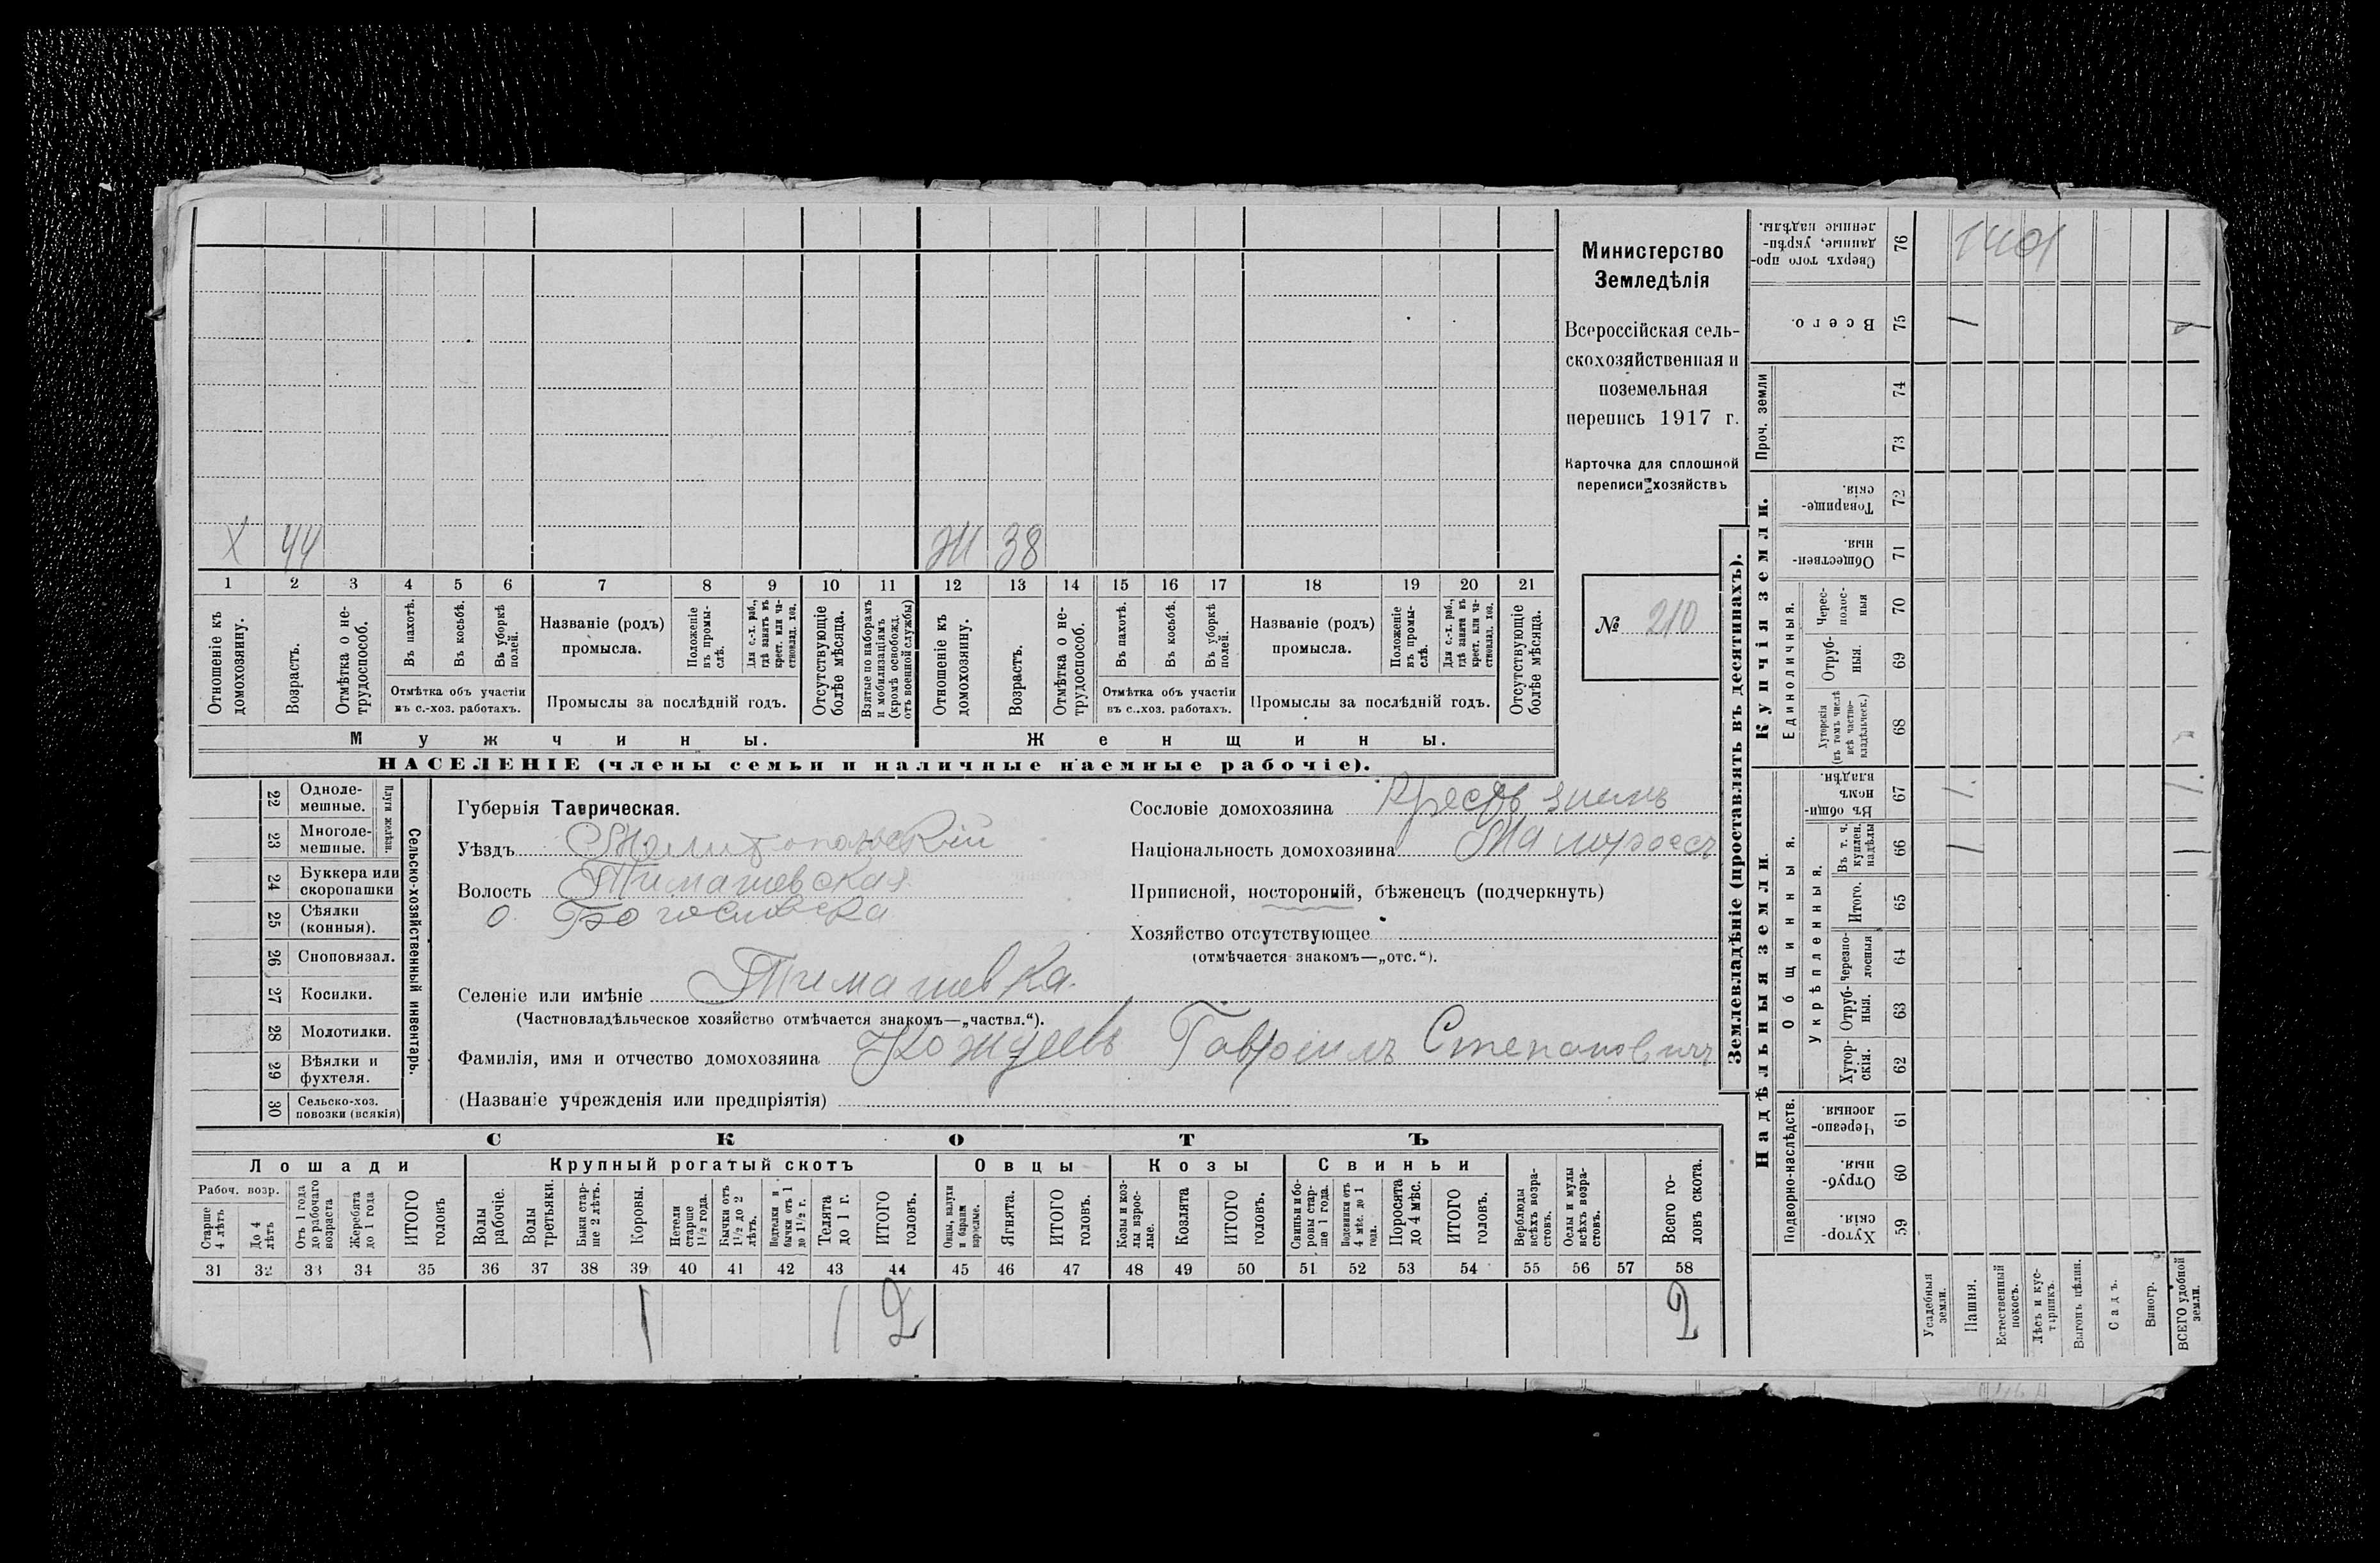 Х 44 Ж 38
1 2 3 4 5 6 7 8 9 10 11 12 13 14 15 16 17 18 19 20 21
Отношеніе къ домохозяину.
Возрастъ.
Отмѣтка о не-
трудоспособ.
Въ пахотѣ.
Въ косьбѣ.
Въ уборкѣ
полей.
Отмѣтка объ участіи
въ с.-хоз. работахъ.
Названіе (родъ)
промысла.
Положеніе
въ промы-
слѣ.
Для с.-х. раб.,
гдѣ занятъ въ
крест. или ча-
стновлад. хоз.
Промыслы за послѣдній годъ.
Отсутствующіе
болѣе мѣсяца.
Взятые по наборамъ
и мобилизаціямъ
(кромѣ освобожд.
отъ военной службы)
Отношеніе къ
домохозяину.
Возрастъ.
Отмѣтка о не-
трудоспособ.
Въ пахотѣ.
Въ косьбѣ.
Въ уборкѣ
полей.
Отмѣтка объ участіи
въ с.-хоз. работахъ.
Названіе (родъ)
промысла.
Положеніе
въ промы-
слѣ.
Для с.-х. раб.,
гдѣ занята въ
крест. или ча-
стновлад. хоз.
Промыслы за послѣдній годъ.
Отсутствующіе
болѣе мѣсяца.
Мужчины. Женщины.
НАСЕЛЕНІЕ (члены семьи и наличные наемные рабочіе).
Министерство
Земледѣлія
Всероссійская сель-
скохозяйственная и
поземельная
перепись 1917 г.
Карточка для сплошной
переписи хозяйствъ
№ 210
22 Одноле-
мешные.
23 Многоле-
мешные.
Плуги желѣзн.
24 Буккера или
скоропашки
25 Сѣялки
(конныя).
26 Сноповязал.
27 Косилки.
28 Молотилки.
29 Вѣялки и
фухтеля.
30 Сельско-хоз.
повозки (всякія)
Сельско-хозяйственный инвентарь.
Губернія Таврическая.
Уѣздъ Мелитопольскій
Волость Тимашевская
о. Богословка
Селеніе или имѣніе Тимашевка.
(Частновладѣльческое хозяйство отмѣчается знакомъ—„частвл.“).
Фамилія, имя и отчество домохозяина Гаврiилъ Степановичъ
(Названіе учрежденія или предпріятія)
Сословіе домохозяина Крестьянинъ
Національность домохозяина Малороссъ
Приписной, посторонній, бѣженецъ (подчеркнуть)
Хозяйство отсутствующее
(отмѣчается знакомъ—„отс.“).
СКОТЪ
Лошади Крупный рогатый скотъ Овцы Козы Свиньи
Рабоч. возр.
Старше
4 лѣтъ
До 4
лѣтъ
Отъ 1 года
до рабочаго
возраста
Жеребята
до 1 года
ИТОГО
головъ
Волы
рабочіе.
Волы
третьяки.
Быки стар-
ше 2 лѣтъ.
Коровы.
Нетели
старше
1½ года.
Бычки отъ
1½ до 2
лѣтъ.
Подтелки и
бычки отъ 1
до 1½ г.
Телята
до 1 г.
ИТОГО
головъ.
Овцы, валухи
и бараны
взрослые.
Ягнята.
ИТОГО
головъ.
Козы и коз-
лы взрос-
лые.
Козлята
ИТОГО
головъ.
Свиньи и бо-
ровы стар-
ше 1 года.
Подсвинки отъ
4 мѣс. до 1
года.
Поросята
до 4 мѣс.
ИТОГО
головъ.
Верблюды
всѣхъ возра-
стовъ.
Ослы и мулы
всѣхъ возра-
стовъ.
Всего го-
ловъ скота.
31 32 33 34 35 36 37 38 39 40 41 42 43 44 45 46 47 48 49 50 51 52 53 54 55 56 57 58
1 1 2 2
Землевладѣніе (проставлять въ десятинахъ).
Сверхъ того про-
данные, укрѣп-
ленные надѣлы.
76
Всего.
75 1
Проч. земли
74
73
Купчія земли.
Товарище-
скія.
72
Обществен-
ныя.
71
Единоличныя.
Черес-
полос-
ныя
70
Отруб-
ныя.
69
Хуторскія
(въ томъ числѣ
всѣ частно-
владѣльческ.)
68
Надѣльныя земли.
Общинныя.
Въ общи-
номъ
владѣн.
67 1. 1.
Укрѣпленныя.
Въ т. ч.
куплен.
надѣлы
66 1 1
Итого.
65
Черезпо-
лосныя
64
Отруб-
ныя.
63
Хутор-
скія.
62
Подворно-наслѣдств.
Черезпо-
лосныя.
61
Отруб-
ныя.
60
Хутор-
скія.
59
Усадебныя
земли.
Пашня.
Естественный
покосъ.
Лѣсъ и кус-
тарникъ.
Выгонъ цѣлин.
Садъ.
Виногр.
ВСЕГО удобной
земли.